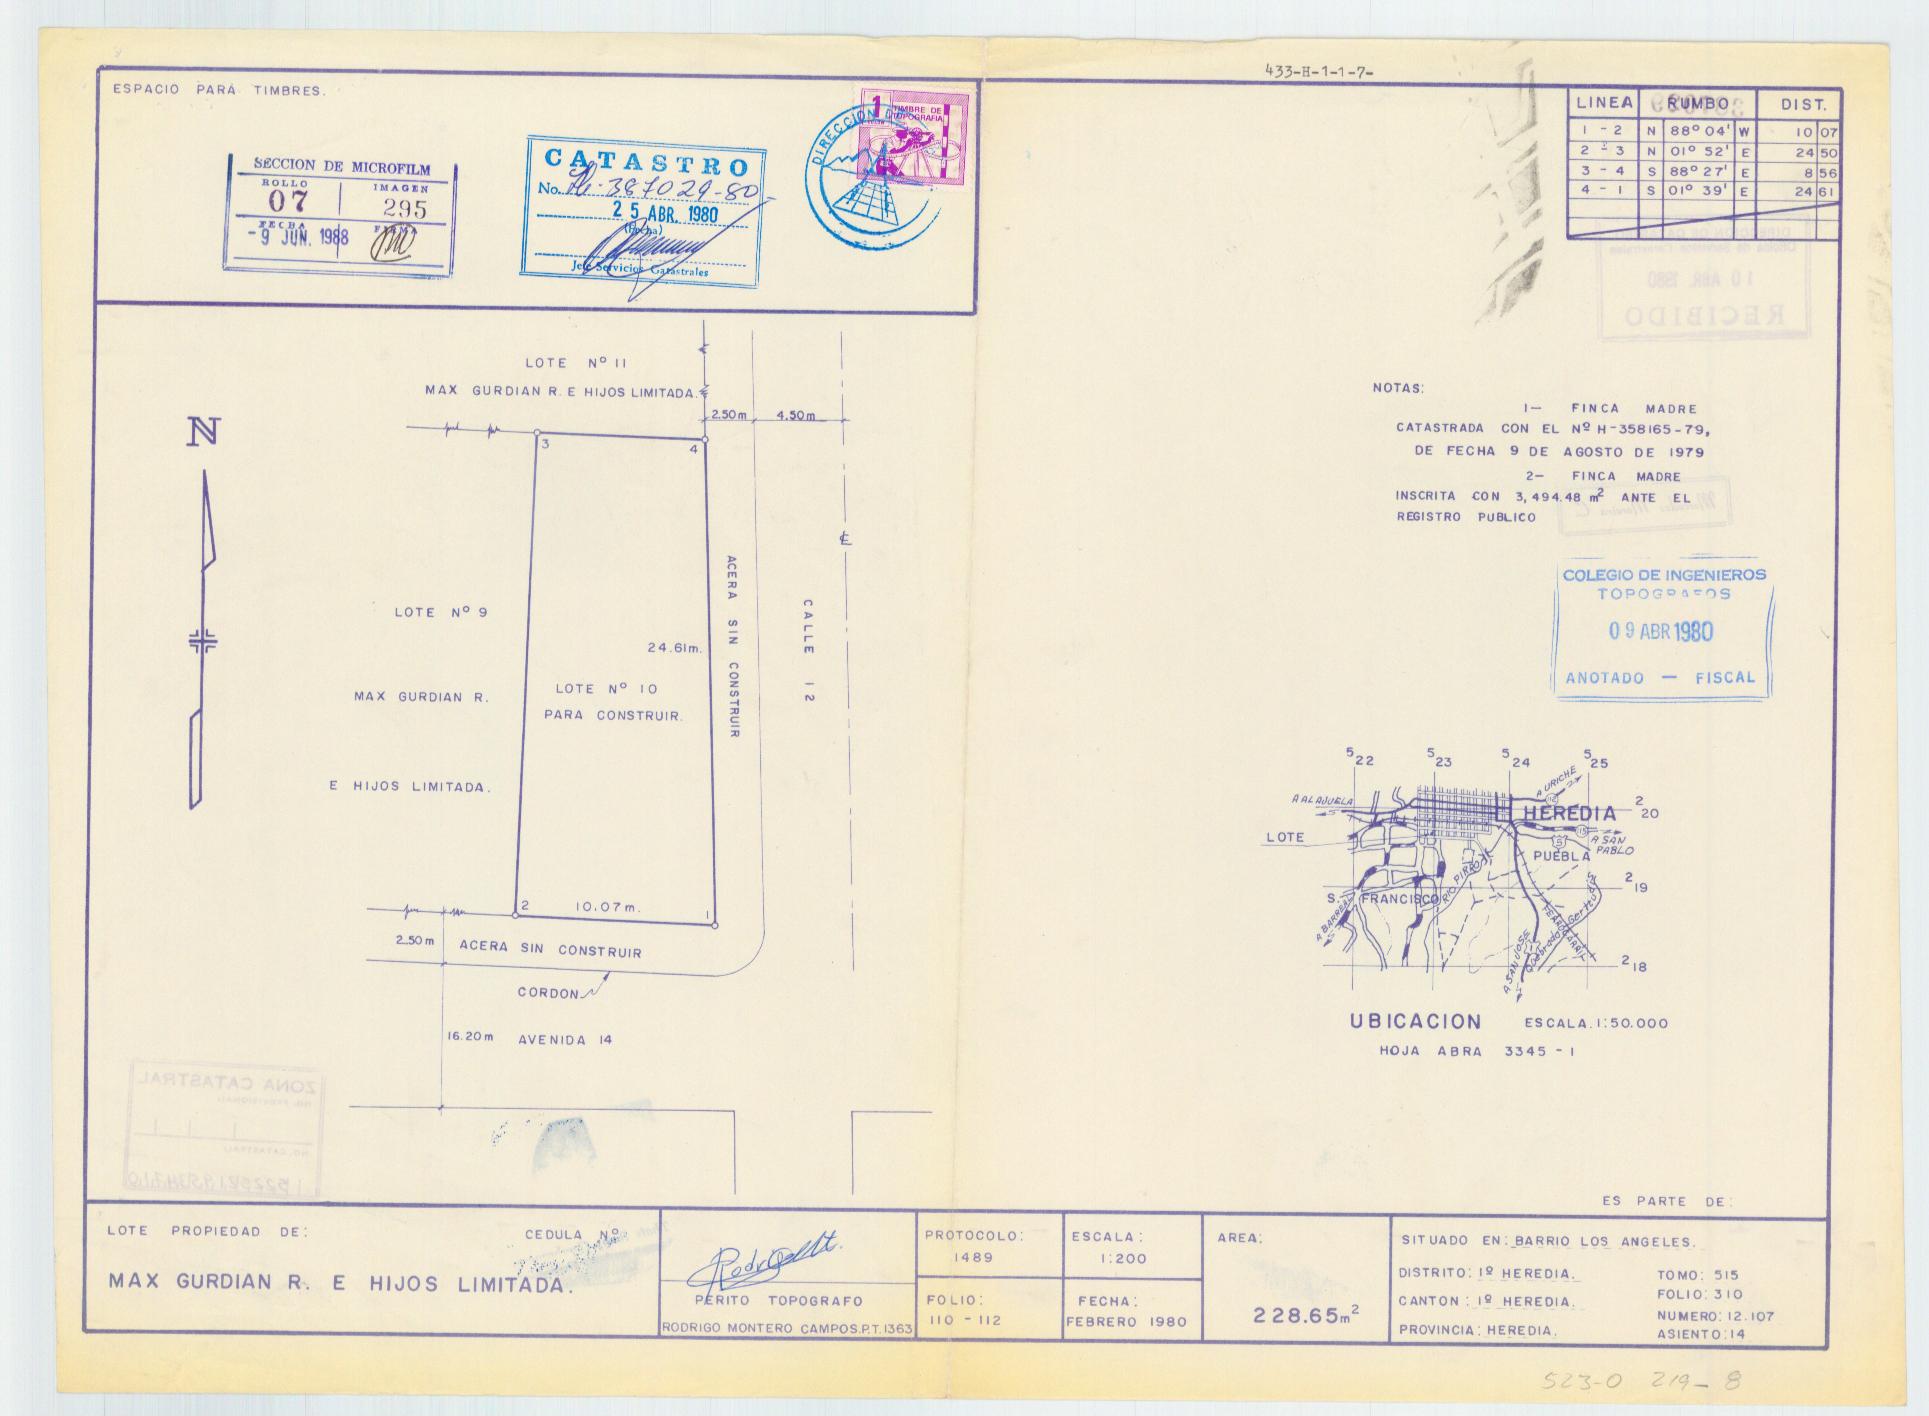 433-H-1-1-7-
ESPACIO PARA TIMBRES.
SECCION DE MICROFILM
ROLLO
IMAGEN
07
295
FECHA
FIRMA
- 9 JUN. 1988
CATASTRO
No. H-387029-80
25 ABR. 1980
(Fecha)
Jefe Servicios Catastrales
DIRECCION D
1
TIMBRE DE
TOPOGRAFIA
LINEA RUMBO DIST.
1 - 2 N 88° 04' W 10 07
2 - 3 N 01° 52' E 24 50
3 - 4 S 88° 27' E 8 56
4 - 1 S 01° 39' E 24 61
10 ABR. 1980
RECIBIDO
LOTE Nº 11
MAX GURDIAN R. E HIJOS LIMITADA.
2.50m 4.50m
N
3
4
LOTE Nº 9
MAX GURDIAN R.
E HIJOS LIMITADA.
24.61m.
LOTE Nº 10
PARA CONSTRUIR.
ACERA SIN CONSTRUIR
CALLE 12
℄
2
10.07m.
1
2.50m
ACERA SIN CONSTRUIR
CORDON
16.20m AVENIDA 14
NOTAS:
1- FINCA MADRE
CATASTRADA CON EL Nº H-358165-79,
DE FECHA 9 DE AGOSTO DE 1979
2- FINCA MADRE
INSCRITA CON 3,494.48 m² ANTE EL
REGISTRO PUBLICO
COLEGIO DE INGENIEROS
TOPOGRAFOS
09 ABR 1980
ANOTADO — FISCAL
5 22 5 23 5 24 5 25
A URICHE
A ALAJUELA
HEREDIA
2 20
LOTE
A SAN
PABLO
PUEBLA
2 19
RIO PIRRO
S. FRANCISCO
A BARREAL
FERROCARRIL
A SAN JOSE
2 18
UBICACION ESCALA. 1:50.000
HOJA ABRA 3345 - I
ZONA CATASTRAL
ES PARTE DE:
LOTE PROPIEDAD DE:
CEDULA Nº
MAX GURDIAN R. E HIJOS LIMITADA.
PERITO TOPOGRAFO
RODRIGO MONTERO CAMPOS.P.T. 1363
PROTOCOLO:
1489
FOLIO:
110 - 112
ESCALA:
1:200
FECHA:
FEBRERO 1980
AREA:
228.65m²
SITUADO EN: BARRIO LOS ANGELES.
DISTRITO: 1º HEREDIA.
CANTON: 1º HEREDIA.
PROVINCIA: HEREDIA.
TOMO: 515
FOLIO: 310
NUMERO: 12.107
ASIENTO: 14
523-0 219-8